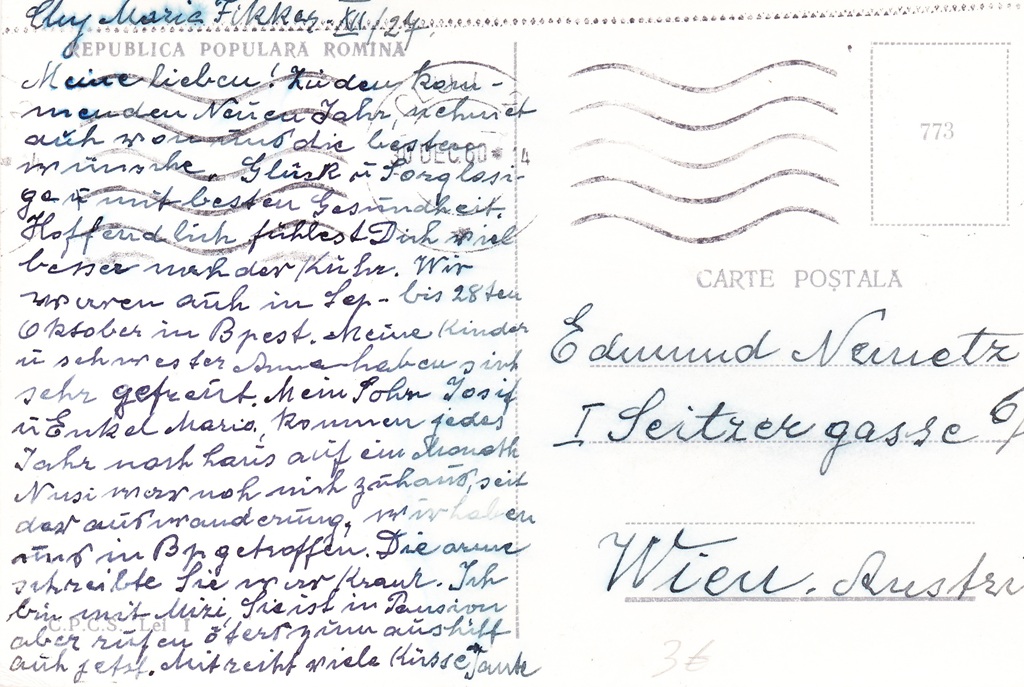 Cluj Maria Fikker XII/27.
REPUBLICA POPULARĂ ROMÎNĂ
Meine lieben! Zu den kom-
menden Neuen Jahr, nehmet
auh von uns die besten
wünshe. Glück u Sorglosi-
ge u mit besten Gesundheit.
Hoffendlich fühlest Dich viel
besser nah der Kuhr. Wir
waren auh in Sep- bis 28ten
Oktober in Bpest. Meine Kinder
u schwester Anna haben sich
sehr gefreut. Mein Sohn Iosif
u Enkel Maria, kommen jedes
Jahr nach haus auf ein Monath
Nusi war noh nich zuhaus, seit
der auswanderung, wir haben
uns in Bp getroffen. Die arme
schreibte Sie war Krank. Ich
bin mit Mizi, Sie ist in Pansion
aber rufen öfters zum aushilf
auh jetst. Mit reiht viele Küsse Tante
C.P.C.S. Lei 1
30 DEC. 60 * 14
773
CARTE POȘTALĂ
Edmund Nemetz
I Seitzergasse 6/
Wien. Austri
3€